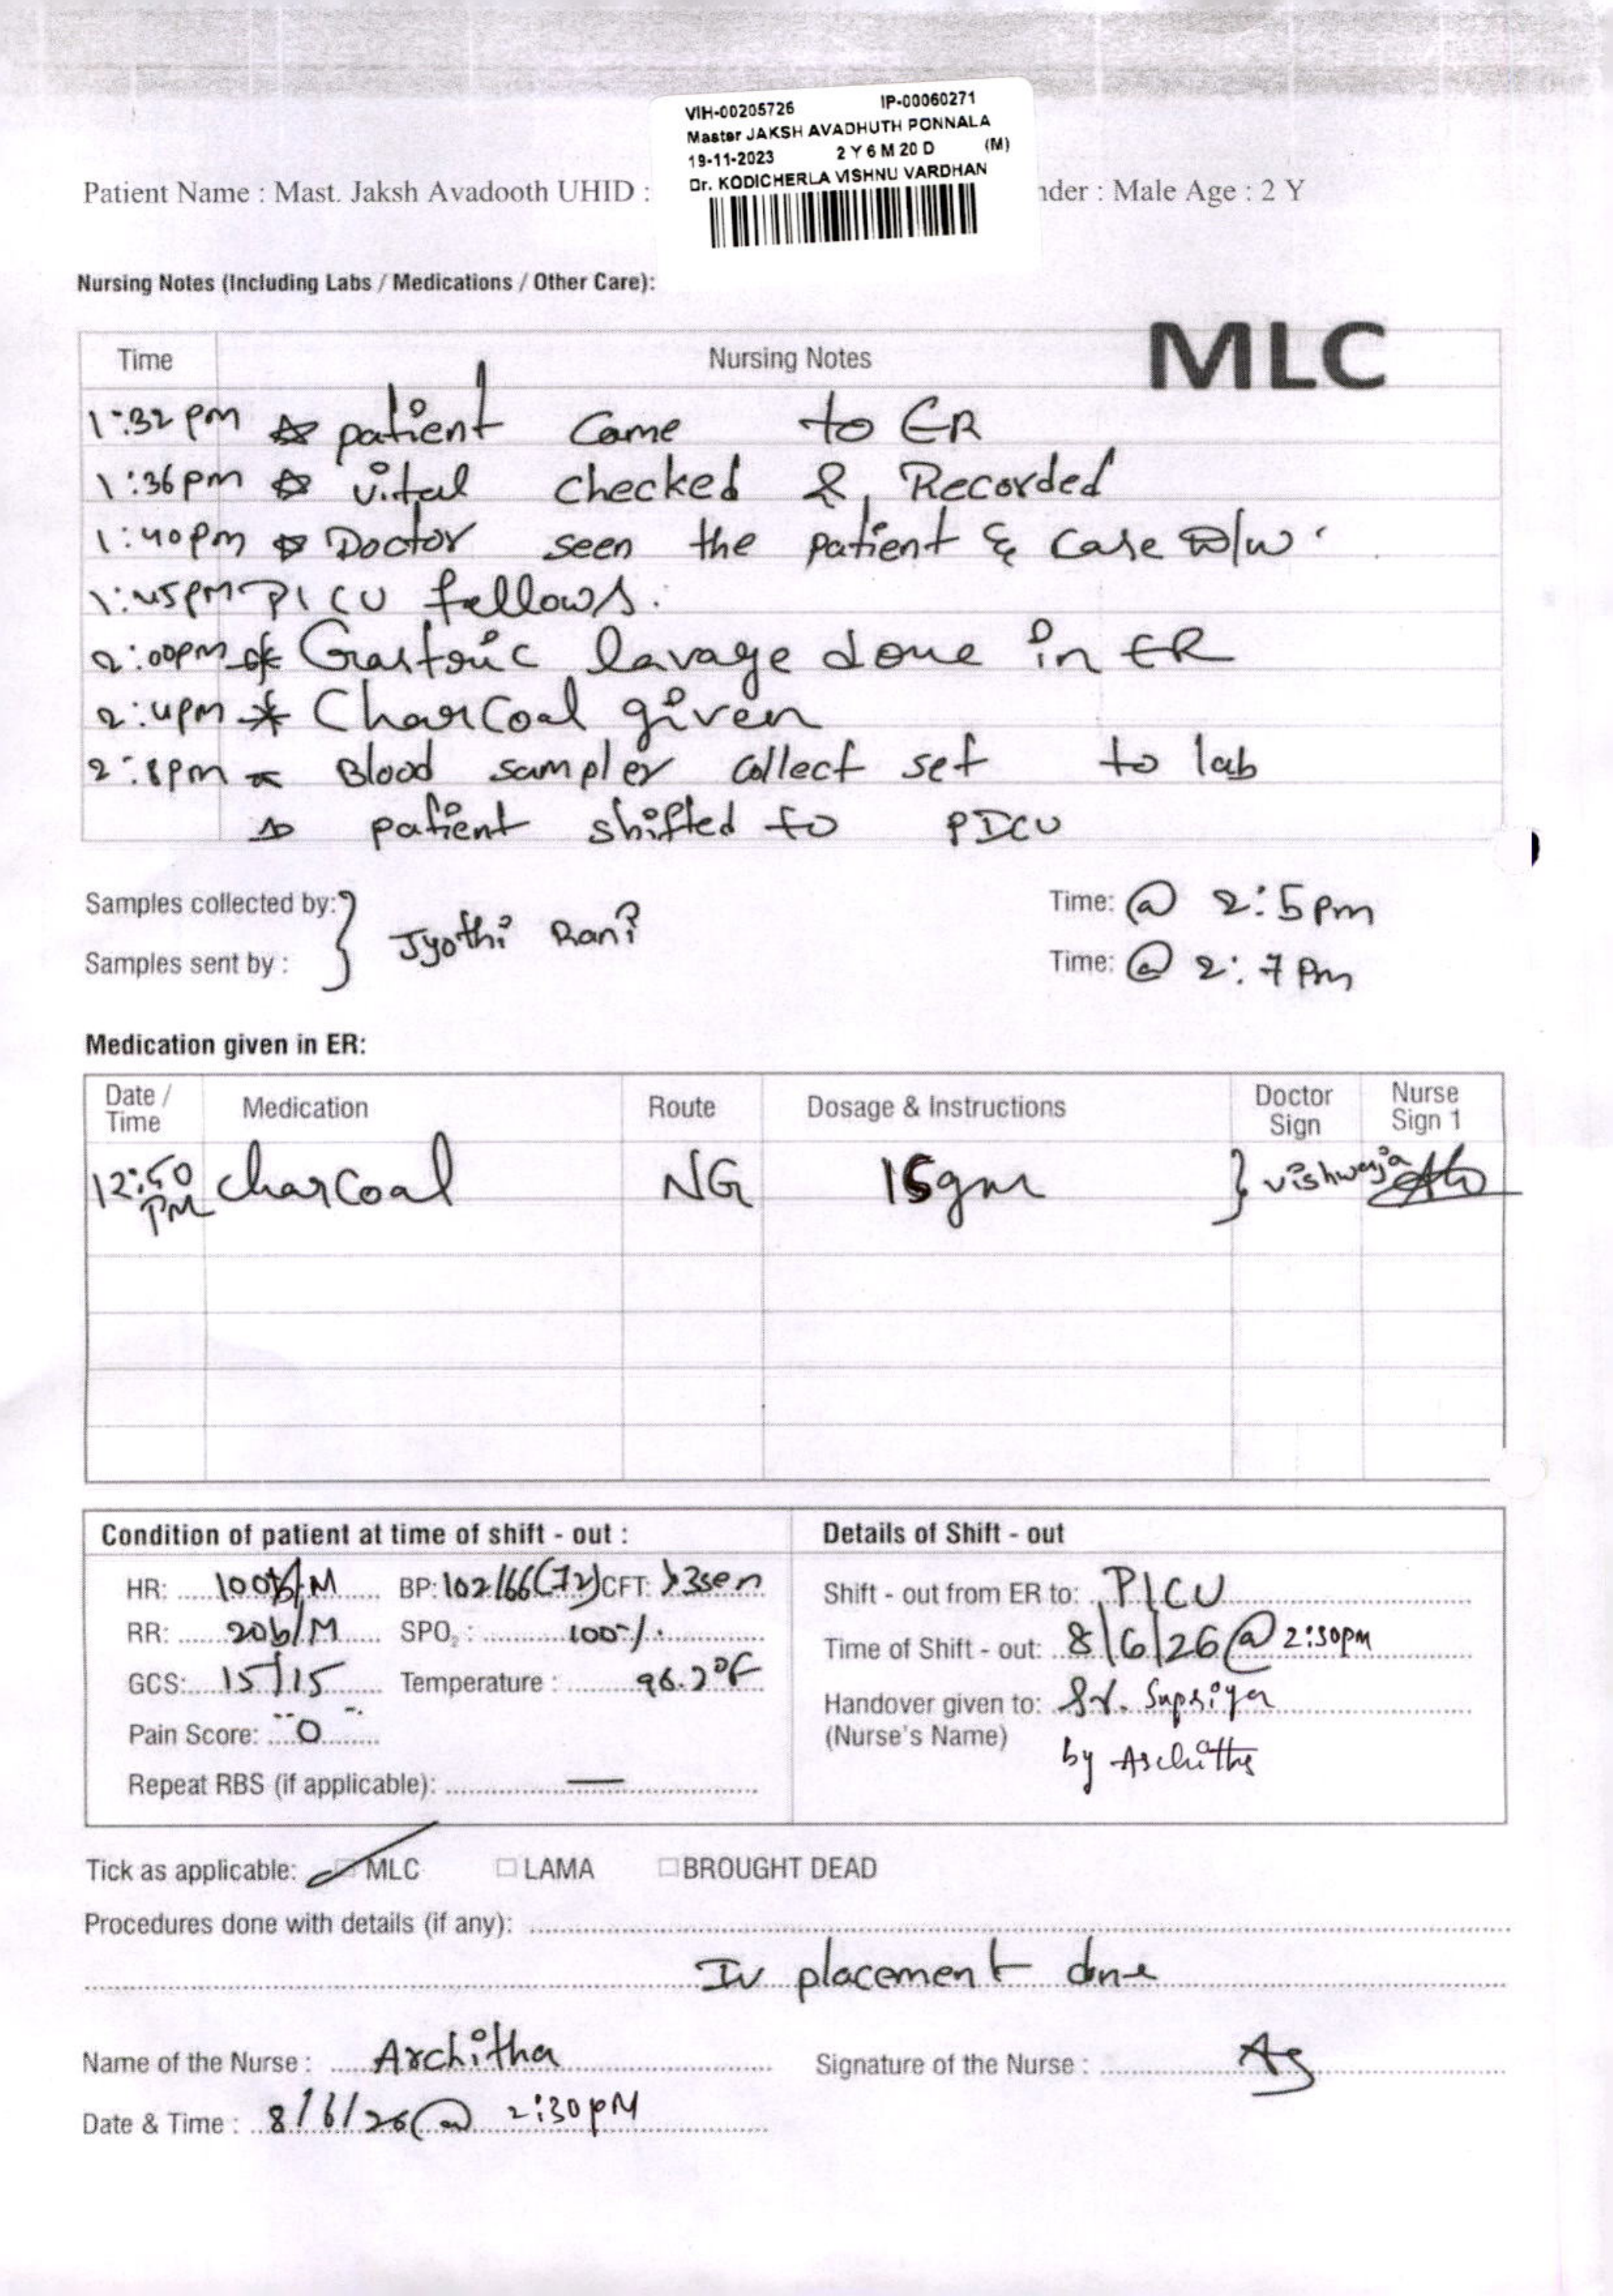 VIH-00205726 IP-00060271
Master JAKSH AVADHUTH PONNALA
19-11-2023 2 Y 6 M 20 D (M)
Dr. KODICHERLA VISHNU VARDHAN
Patient Name : Mast. Jaksh Avadooth UHID : nder : Male Age : 2 Y
Nursing Notes (Including Labs / Medications / Other Care):
MLC
Time Nursing Notes
1:32 pm patient came to ER
1:36 pm vital checked & Recorded
1:40 pm Doctor seen the patient & case D/w
1:45 PM PICU fellows.
2:00pm Gastric lavage done in ER
2:4pm Charcoal given
2:8pm Blood sampler collect set to lab
patient shifted to PICU
Samples collected by: Jyothi Rani Time: @ 2:5 pm
Samples sent by : Time: @ 2:7 Pm
Medication given in ER:
Date / Time Medication Route Dosage & Instructions Doctor Sign Nurse Sign 1
12:50 PM charcoal NG 15gm vishwaja
Condition of patient at time of shift - out : Details of Shift - out
HR: 100b/M BP: 102/66(72) CFT: >3sen
Shift - out from ER to: PICU
RR: 20b/M SPO2 : 100%
Time of Shift - out: 8/6/26 @ 2:30pm
GCS: 15/15 Temperature : 96.2°F
Handover given to: Sr. Supriya
(Nurse's Name) by Architha
Pain Score: 0
Repeat RBS (if applicable): —
Tick as applicable: MLC LAMA BROUGHT DEAD
Procedures done with details (if any):
Iv placement done
Name of the Nurse : Architha Signature of the Nurse :
Date & Time : 8/6/26 @ 2:30pM